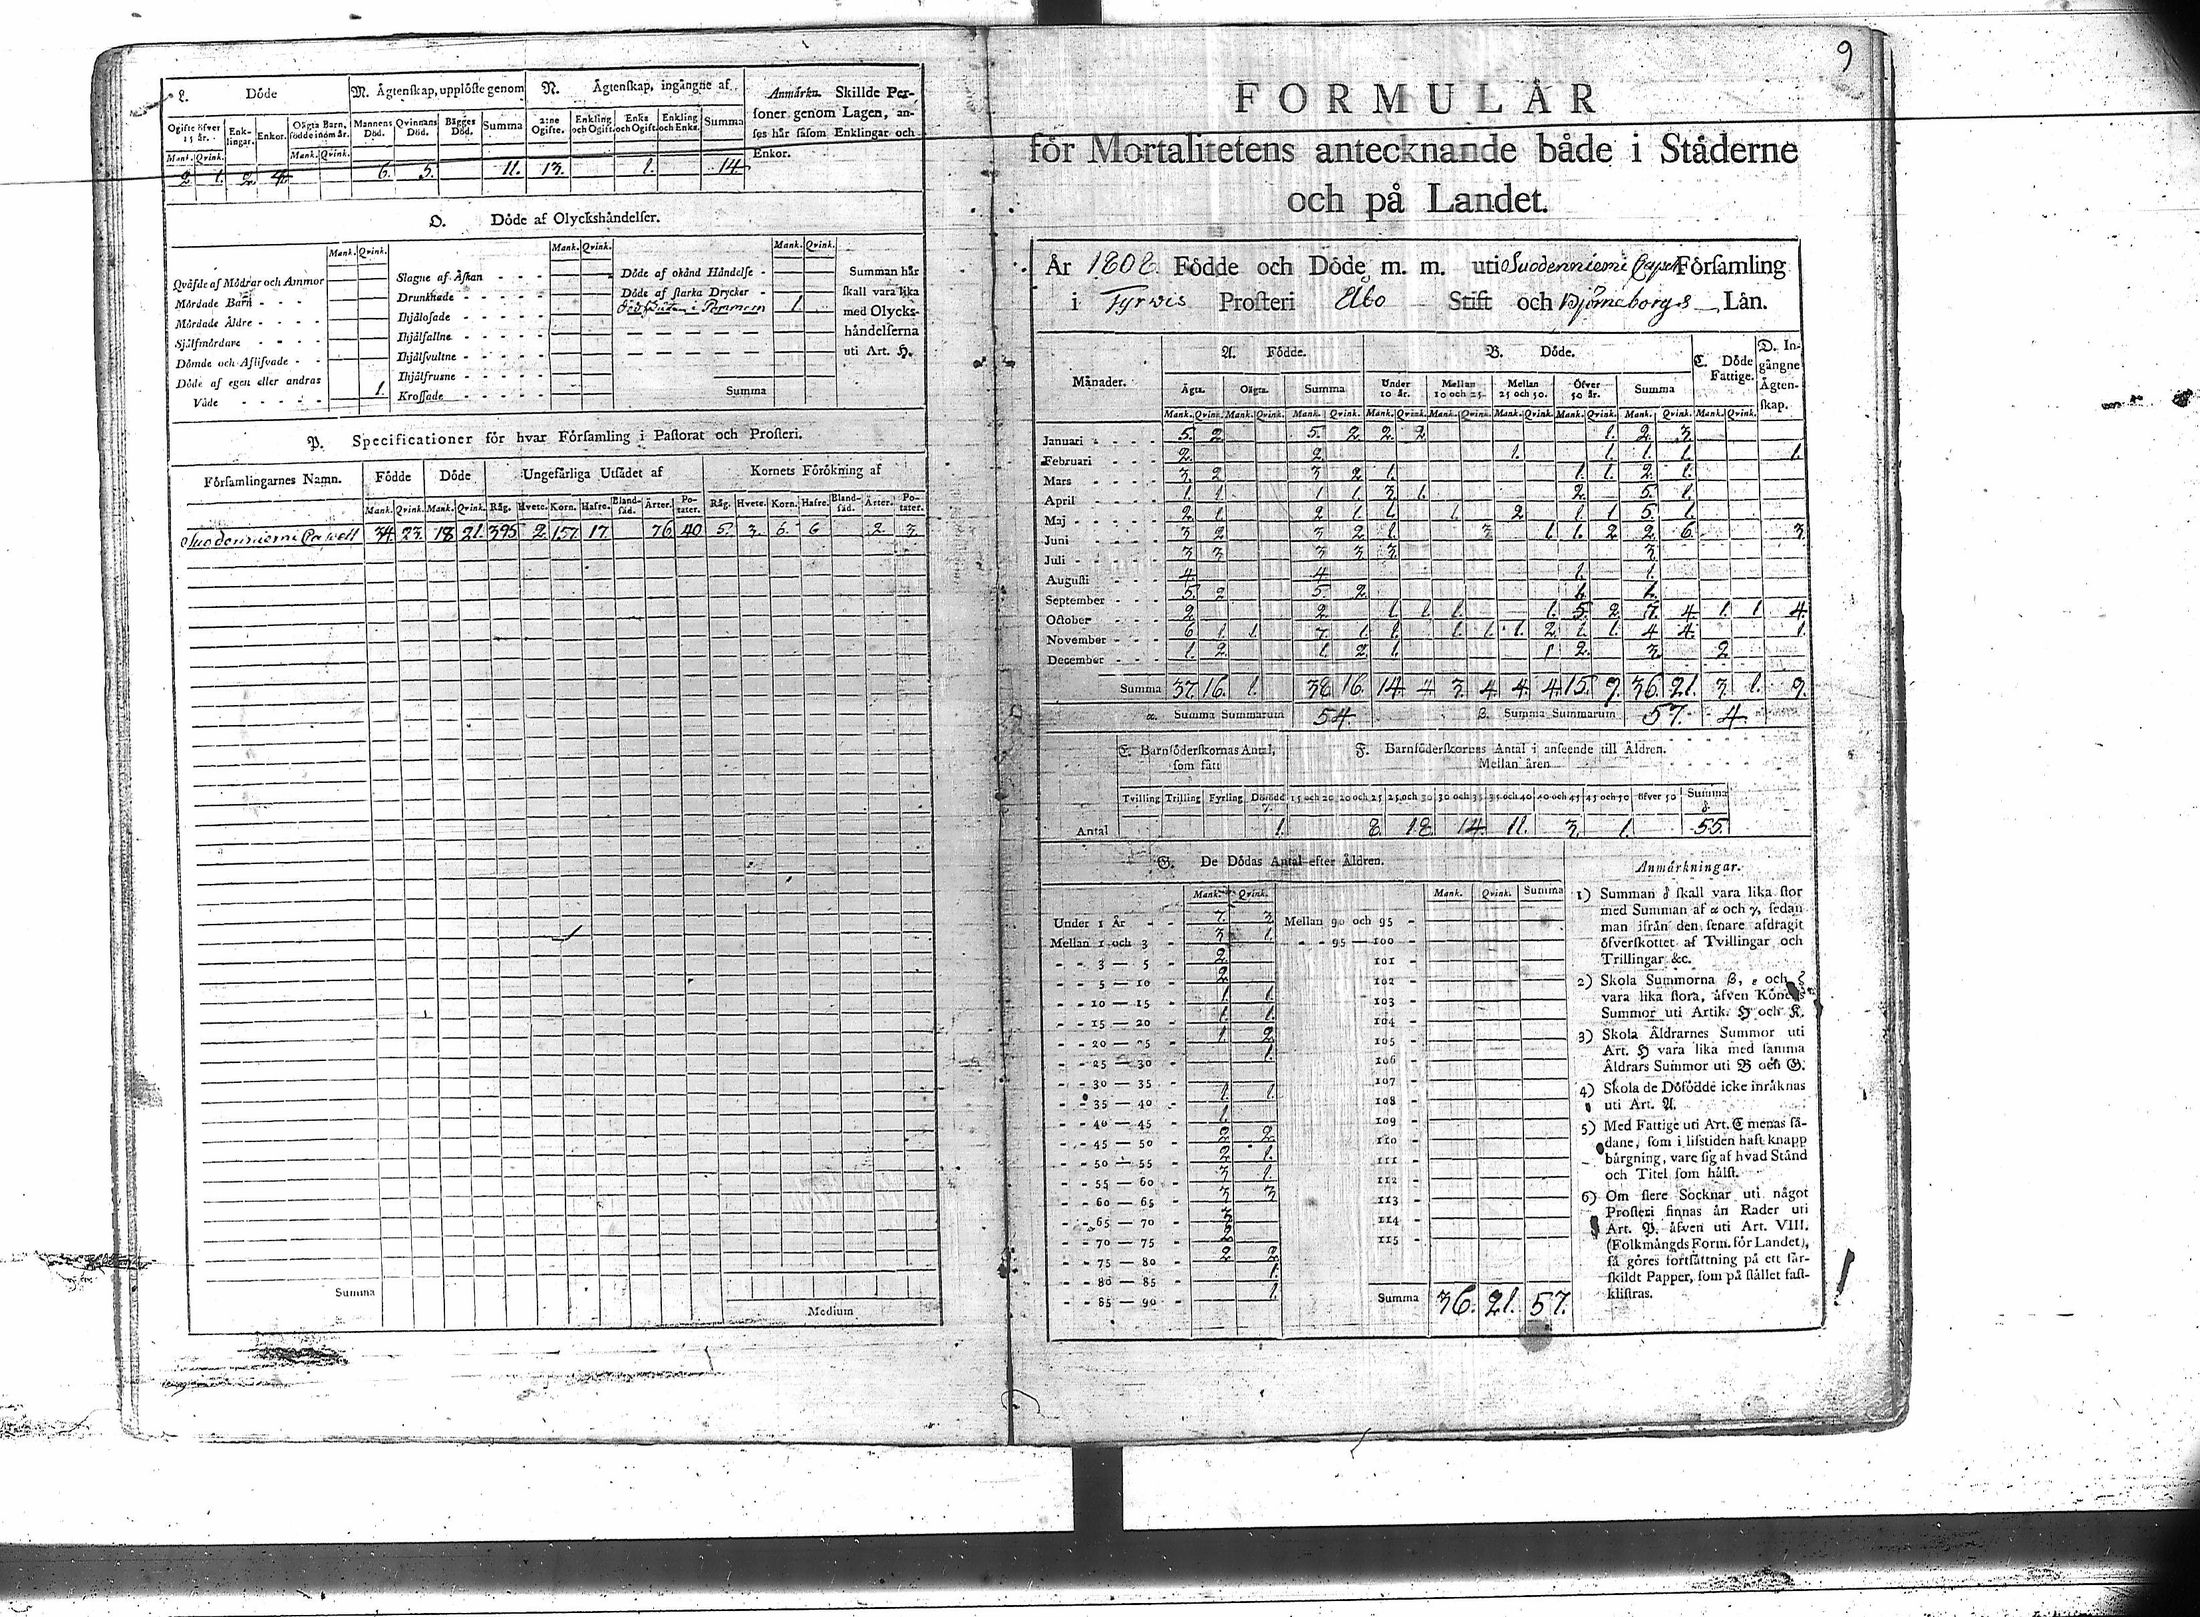 9
L. Döde
M. Ägtenskap, upplöste genom
N. Ägtenskap, ingångne af
Anmärkn. Skillde Per-
soner genom Lagen, an-
ses här såsom Enklingar och
Enkor.
Ogifte öfver 15 år. Enk-lingar. Enkor. Oägta Barn, födde inom år. Mannens Död. Qvinnans Död. Bägges Död. Summa 2:ne Ogifte. Enkling och Ogift. Enka och Ogift. Enkling och Enka. Summa
Mank. Qvink. Mank. Qvink.
2 1. 2. 4. 6. 5. 11. 13. 1. 14
O. Döde af Olyckshändelser.
Mank. Qvink. Mank. Qvink. Mank. Qvink.
Qväfde af Mödrar och Ammor
Mördade Barn
Mördade Äldre
Sjelfmördare
Dömde och Aflifvade
Döde af egen eller andras
Våde 1.
Slagne af Åskan
Drunknade
Ihjälosade
Ihjälfallne
Ihjälsvultne
Ihjälfrusne
Krossade
Döde af okänd Händelse
Döde af starka Drycker
1.
Summa
Summan här
skall vara lika
med Olycks-
händelserna
uti Art. H.
P. Specificationer för hvar Församling i Pastorat och Prosteri.
Församlingarnes Namn. Födde Döde Ungefärliga Utsädet af Kornets Förökning af
Mank. Qvink. Mank. Qvink. Råg. Hvete. Korn. Hafre. Bland-säd. Ärter. Po-tater. Råg. Hvete. Korn. Hafre. Bland-säd. Ärter. Po-tater.
Suodenniemi Capell 34 23. 18 21. 395 2 157 17. 76 40 5. 3. 6. 6 2. 3.
Summa
Medium
FORMULÄR
för Mortalitetens antecknande både i Städerne
och på Landet.
År 1808. Födde och Döde m. m. uti Suodenniemi Capell Församling
i Tyrvis Prosteri Åbo Stift och Björneborgs Län.
Månader. A. Födde. B. Döde. C. Döde Fattige. D. In-gångne Ägten-skap.
Ägta. Oägta. Summa Under 10 år. Mellan 10 och 25. Mellan 25 och 50. Öfver 50 år. Summa
Mank. Qvink. Mank. Qvink. Mank. Qvink. Mank. Qvink. Mank. Qvink. Mank. Qvink. Mank. Qvink. Mank. Qvink. Mank. Qvink.
Januari 5. 2 5. 2 2. 2 1. 2. 3.
Februari 2. 2. 1. 1. 1. 1. 1.
Mars 3. 2 3 2 1. 1. 1. 2 1.
April 1. 1. 1 1. 3. 1. 2. 5. 1.
Maj 2. 1. 2 1. 1. 1. 2 1. 1 5. 1.
Juni 3 2 3 2 1. 3 1. 1. 2 2. 6. 3.
Juli 3 3 3 3 3. 3.
Augusti 4. 4 1. 1.
September 5. 2 5. 2. 1. 1.
October 2. 2. 1. 1. 1. 1. 5. 2. 7. 4. 1. 1. 4.
November 6 1. 1. 7. 1. 1. 1. 1. 1. 2. 1. 1. 4 4. 1.
December 1. 2. 1. 2. 1. 1 2. 3. 2
Summa 37. 16. 1. 38 16. 14. 4 3. 4. 4. 4. 15. 9. 36. 21. 3. 1. 9.
α. Summa Summarum 54 β. Summa Summarum 57. 4.
E. Barnföderskornas Antal,
som fått
F. Barnföderskornas Antal i anseende till Åldren.
Mellan åren
Tvilling Trilling Fyrling Dödfödd 15 och 20 20 och 25 25 och 30 30 och 35 35 och 40 40 och 45 45 och 50 öfver 50 Summa δ
Antal 1. 8. 18. 14. 11. 3. 1. 55.
G. De Dödas Antal efter Åldren.
Mank. Qvink. Mank. Qvink. Summa
Under 1 År 7. 3. Mellan 90 och 95
Mellan 1 och 3 3. 1. 95 — 100
3 — 5 2. 101
5 — 10 2 102
10 — 15 1. 1. 103
15 — 20 1. 1. 104
20 — 25 1. 2. 105
25 — 30 1. 106
30 — 35 107
35 — 40 1. 1. 108
40 — 45 1. 109
45 — 50 2 2. 110
50 — 55 2 1. 111
55 — 60 3 1. 112
60 — 65 3 3 113
65 — 70 3. 114
70 — 75 2. 115
75 — 80 2 2.
80 — 85 1.
85 — 90 1. Summa 36. 21. 57.
Anmärkningar.
1) Summan δ skall vara lika stor
med Summan af α och γ, sedan
man ifrån den senare afdragit
öfverskottet af Tvillingar och
Trillingar &c.
2) Skola Summorna β, ε och ζ
vara lika stora, äfven Könens
Summor uti Artik. H och K.
3) Skola Åldrarnes Summor uti
Art. H vara lika med samma
Åldrars Summor uti B och G.
4) Skola de Döfödde icke inräknas
uti Art. A.
5) Med Fattige uti Art. C menas så-
dane, som i lifstiden haft knapp
bärgning, vare sig af hvad Stånd
och Titel som hälst.
6) Om flere Socknar uti något
Prosteri finnas än Rader uti
Art. P. äfven uti Art. VIII.
(Folkmängds Form. för Landet),
så göres fortsättning på ett sär-
skildt Papper, som på stället fast-
klistras.